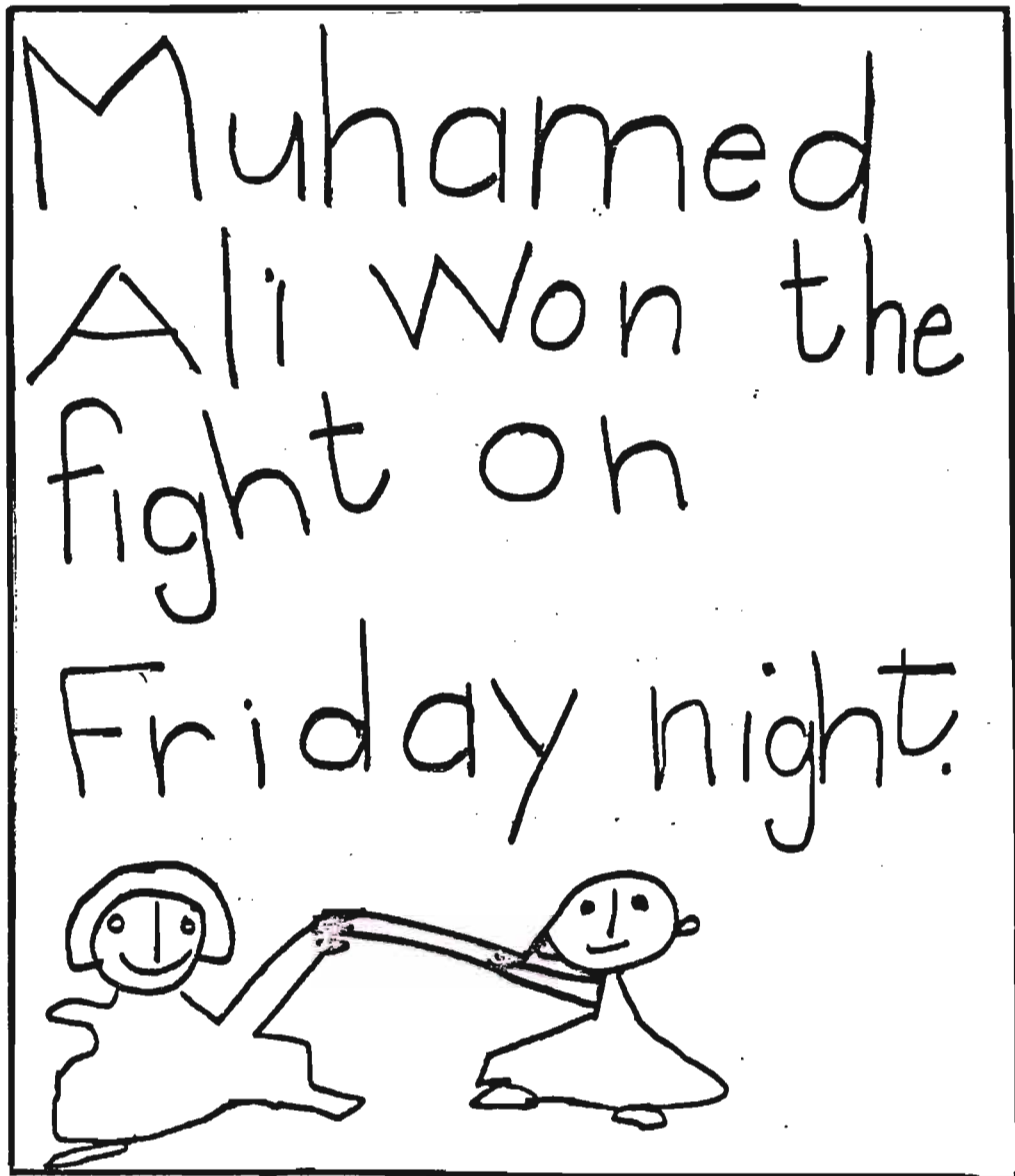 Muhamed
Ali Won the
fight on
Friday night.